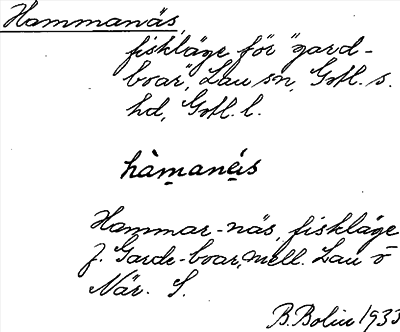 Hammanäs
fiskläge för "gard-
boar", Lau sn, Gotl. s.
hd, Gotl. l.
hàmanéis
Hammar-näs, fiskläge
f. Garde-boar, mell. Lau o
När. S.
B. Bolin 1933